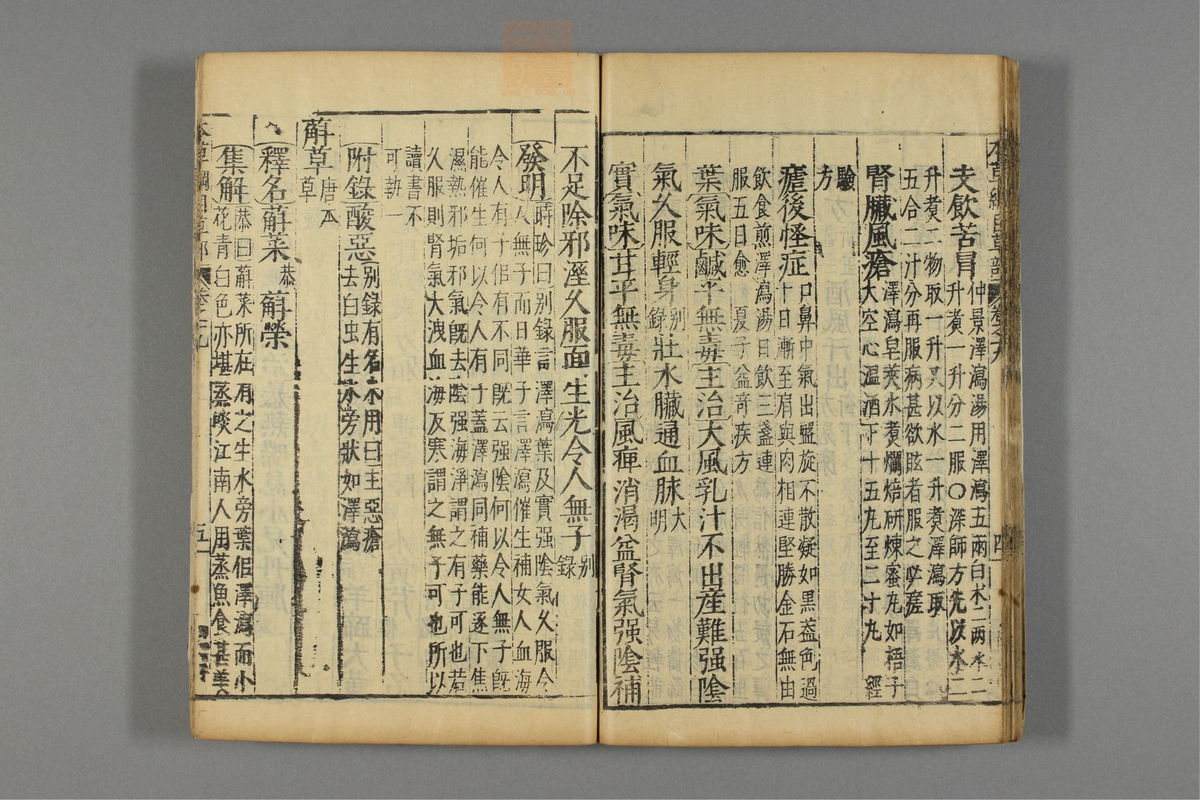 本草綱目草部 卷之十九 四
夫飲苦冒仲景澤瀉湯用澤瀉五兩白朮二兩水二
升煮一升分二服〇深師方先以水二
升煮二物取一升具以水一升煮澤瀉取
五合二汁分再服病甚欲眩者服之必瘥
腎臟風瘡澤瀉皂莢水煮爛焙研煉蜜丸如梧子
大空心溫酒下十五丸至二十丸 經
驗
方
瘧後怪症口鼻中氣出盤旋不散疑如黑蓋色過
十日漸至肩與肉相連堅勝金石無由
飲食煎澤瀉湯日飲三盞連
服五日愈 夏子益奇疾方
葉氣味鹹平無毒主治大風乳汁不出産難强陰
氣久服輕身別錄壯水臟通血脉大明
實氣味甘平無毒主治風痺消渴益腎氣强陰補
不足除邪溼久服面生光令人無子別錄
發明時珍曰别錄言澤瀉葉及實强陰氣久服令
人無子而日華子言澤瀉催生補女人血海
令人有子佀有不同既云强陰何以令人無子旣
能催生何以令人有子蓋澤瀉同補藥能逐下焦
濕熱邪垢邪氣旣去陰强海淨謂之有子可也若
久服則腎氣大洩血海反寒謂之無子可也所以
讀書不
可執一
附錄酸惡别錄有名未用曰主惡瘡
去白虫生水旁狀如澤瀉
蔛草唐本草
釋名蔛菜恭蔛榮
集解恭曰蔛菜所在有之生水旁葉佀澤瀉而小
花青白色亦堪蒸啖江南人用蒸魚食甚美
本草綱目草部 卷之十九 五